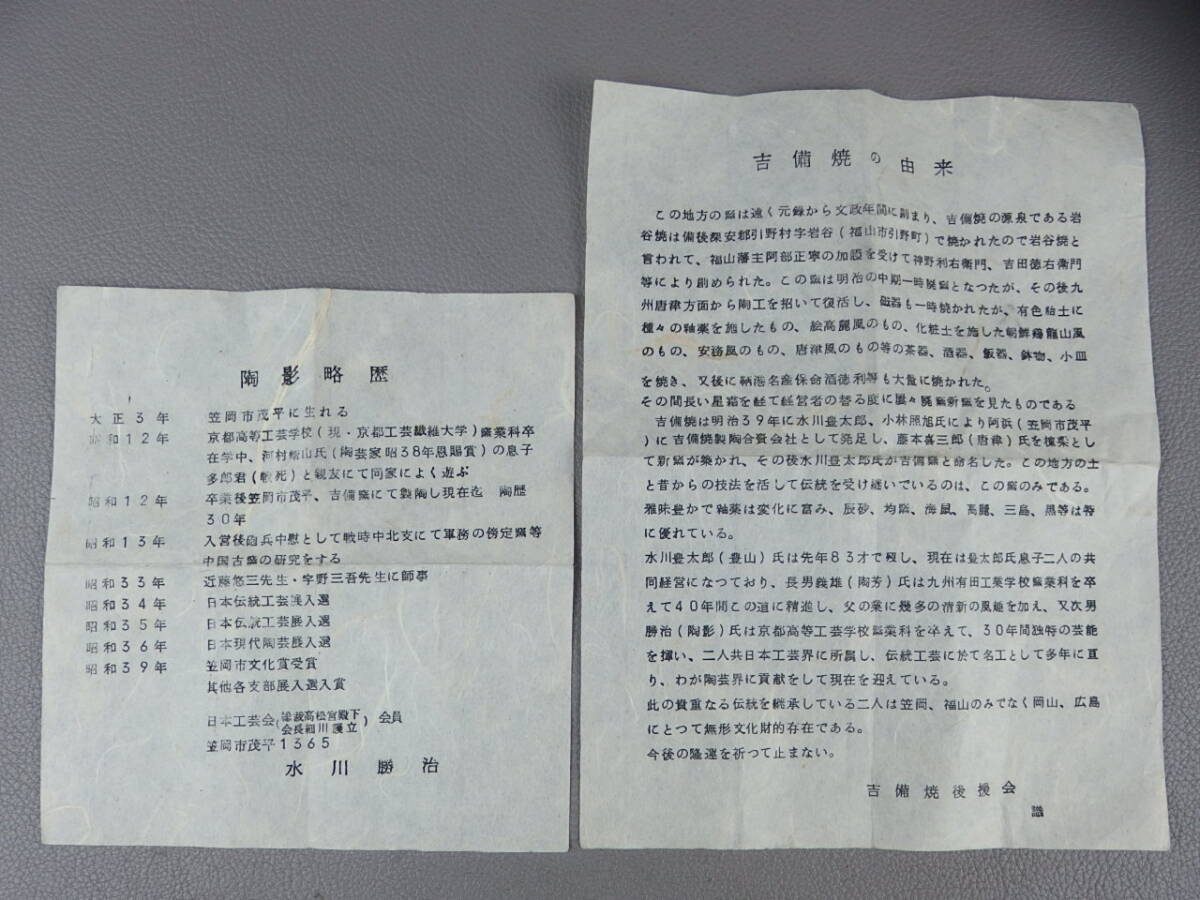 陶影略歴
大正3年 笠岡市茂平に生れる
昭和12年 京都高等工芸学校(現・京都工芸繊維大学)窯業科卒
在学中、河村蜻山氏(陶芸家昭38年恩賜賞)の息子
多郎君(戦死)と親友にて同家によく遊ぶ
昭和12年 卒業後笠岡市茂平、吉備窯にて製陶し現在迄 陶歴
30年
昭和13年 入営後砲兵中慰として戦時中北支にて軍務の傍定窯等
中国古窯の研究をする
昭和33年 近藤悠三先生・宇野三吾先生に師事
昭和34年 日本伝統工芸展入選
昭和35年 日本伝統工芸展入選
昭和36年 日本現代陶芸展入選
昭和39年 笠岡市文化賞受賞
其他各支部展入選入賞
日本工芸会(総裁高松宮殿下 会長細川護立)会員
笠岡市茂平1365
水川勝治
吉備焼の由来
この地方の窯は遠く元録から文政年間に創まり、吉備焼の源泉である岩
谷焼は備後深安郡引野村字岩谷(福山市引野町)で焼かれたので岩谷焼と
言われて、福山藩主阿部正寧の加護を受けて神野利右衛門、吉田徳右衛門
等により創められた。この窯は明治の中期一時廃窯となつたが、その後九
州唐津方面から陶工を招いて復活し、磁器も一時焼かれたが、有色粘土に
種々の釉薬を施したもの、絵高麗風のもの、化粧土を施した朝鮮鶏龍山風
のもの、安南風のもの、唐津風のもの等の茶器、酒器、飯器、鉢物、小皿
を焼き、又後に鞆港名産保命酒徳利等も大量に焼かれた。
その間長い星霜を経て経営者の替る度に屡々廃窯新窯を見たものである
吉備焼は明治39年に水川豊太郎、小林照旭氏により阿浜(笠岡市茂平
)に吉備焼製陶合資会社として発足し、藤本喜三郎(唐津)氏を棟梁とし
て新窯が築かれ、その後水川豊太郎氏が吉備窯と命名した。この地方の土
と昔からの技法を活して伝統を受け継いでいるのは、この窯のみである。
雅味豊かで釉薬は変化に富み、辰砂、均窯、海鼠、高麗、三島、黒等は特
に優れている。
水川豊太郎(豊山)氏は先年83才で歿し、現在は豊太郎氏息子二人の共
同経営になつており、長男義雄(陶芳)氏は九州有田工業学校窯業科を卒
えて40年間この道に精進し、父の業に幾多の清新の風趣を加え、又次男
勝治(陶影)氏は京都高等工芸学校窯業科を卒えて、30年間独特の芸能
を揮い、二人共日本工芸界に所属し、伝統工芸に於て名工として多年に亘
り、わが陶芸界に貢献をして現在を迎えている。
此の貴重なる伝統を継承している二人は笠岡、福山のみでなく岡山、広島
にとつて無形文化財的存在である。
今後の隆運を祈つて止まない。
吉備焼後援会
識